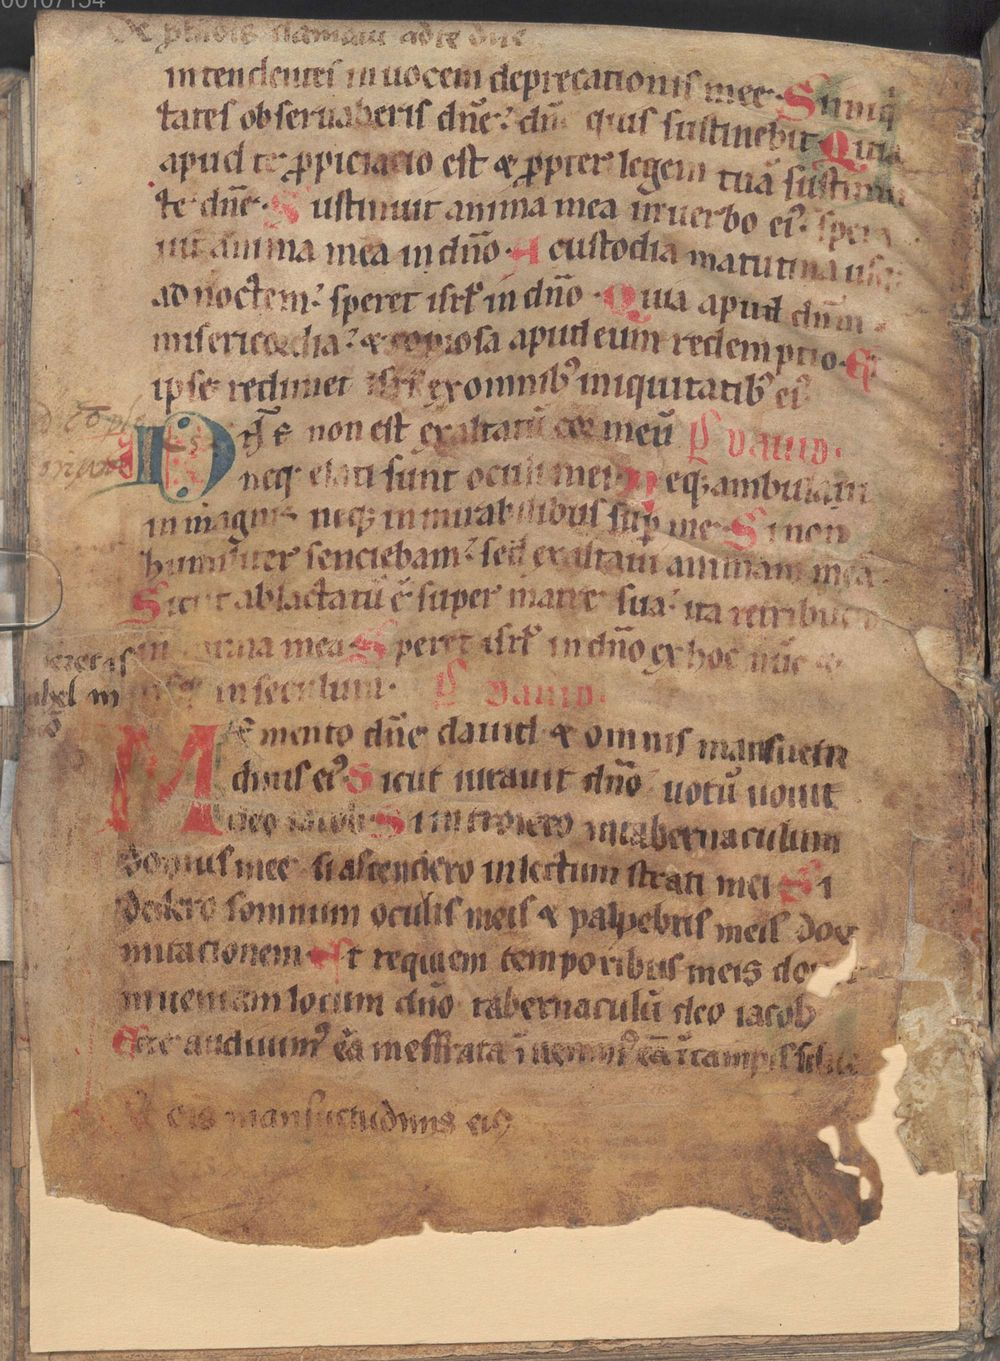 00107154
De p̄fūdis clamaui ad te dn̄e
intendentes in uocem deprecationis mee· Si iniq̇
tates obseruaberis dn̄e? dn̄e quis sustinebit Quia
apud te ꝓpiciacio est ⁊ ꝓpter legem tuā sustinui
te dn̄e· Sustinuit anima mea in uerbo ei᷒· spera
uit anima mea in dn̄o· A custodia matutina usq;
ad noctem? speret isrł in dn̄o· Quia apud dn̄m
misericordia? ⁊ copiosa apud eum redemptio· Et
ipse redimet isrł ex omnib᷒ iniquitatib᷒ ei᷒
non est exaltatū cor meū Ps dauid·
neq; elati sunt oculi mei· Neq; ambulaui
in magnis neq; in mirabilibus sup̄ me· Si non
humiliter senciebam? sed exaltaui animam meā·
Sicut ablactatū ē super matre sua? ita retribucio
in anima mea Speret isrł in dn̄o ex hoc nūc ⁊
usq; in seculum· Ps dauid·
Memento dn̄e dauid ⁊ omnis mansuetu
dinis ei᷒· Sicut iurauit dn̄o uotū uouit
deo iacob· Si introiero in tabernaculum
domus mee si ascendero in lectum strati mei Si
dedero somnum oculis meis ⁊ palpebris meis dor
mitacionem· Et requiem temporibus meis donec
inueniam locum dn̄o tabernaculū deo iacob
Ecce audiuim᷒ eā in effrata īuenim᷒ eā ī campis silue
mansuetudinis ei᷒